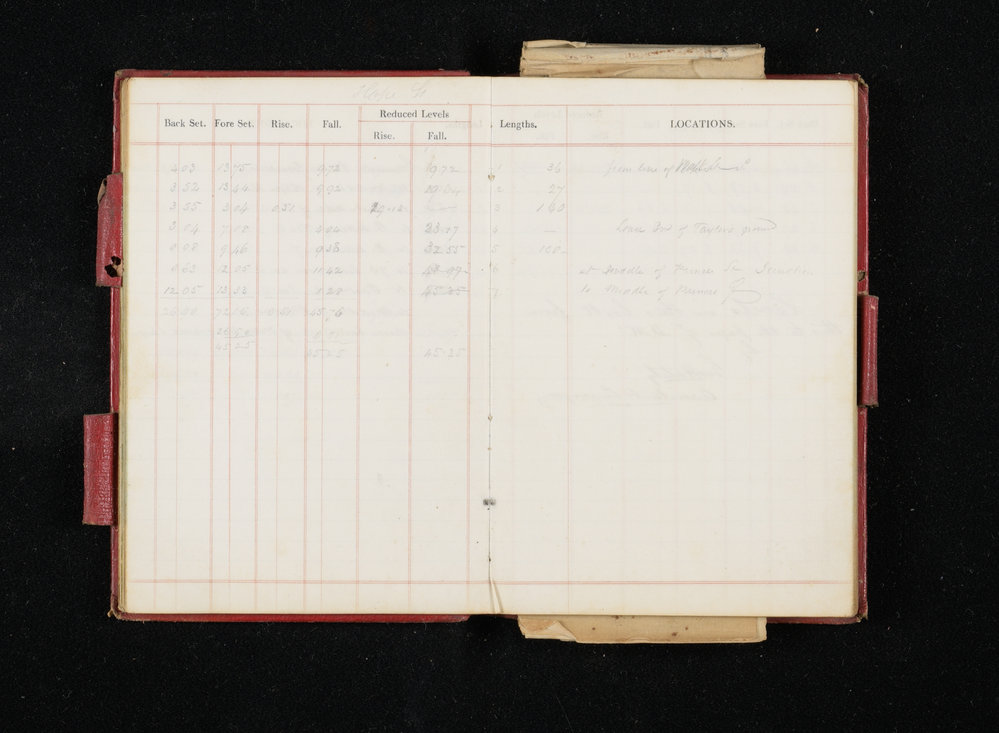 Hope St
Reduced Levels
Back Set. Fore Set. Rise. Fall. Rise. Fall. Lengths. LOCATIONS.
4.03 13.75 9.72 9.72 1 36 from line of
3.52 13.44 9.92 2 27
3.55 3.04 0.51 3 160
3.04 7.08 4.04 23.17 4 — Lower End of Taylors ground
0.08 9.46 9.38 32.55 5 100
0.63 12.05 11.42 43.97 6 at Middle of Prince St Junction
12.05 13.33 1.28 45.25 7 to Middle of Prince
26.90 72.15 0.51 45.76
26.90 0.51
45.25
45.25 45.25